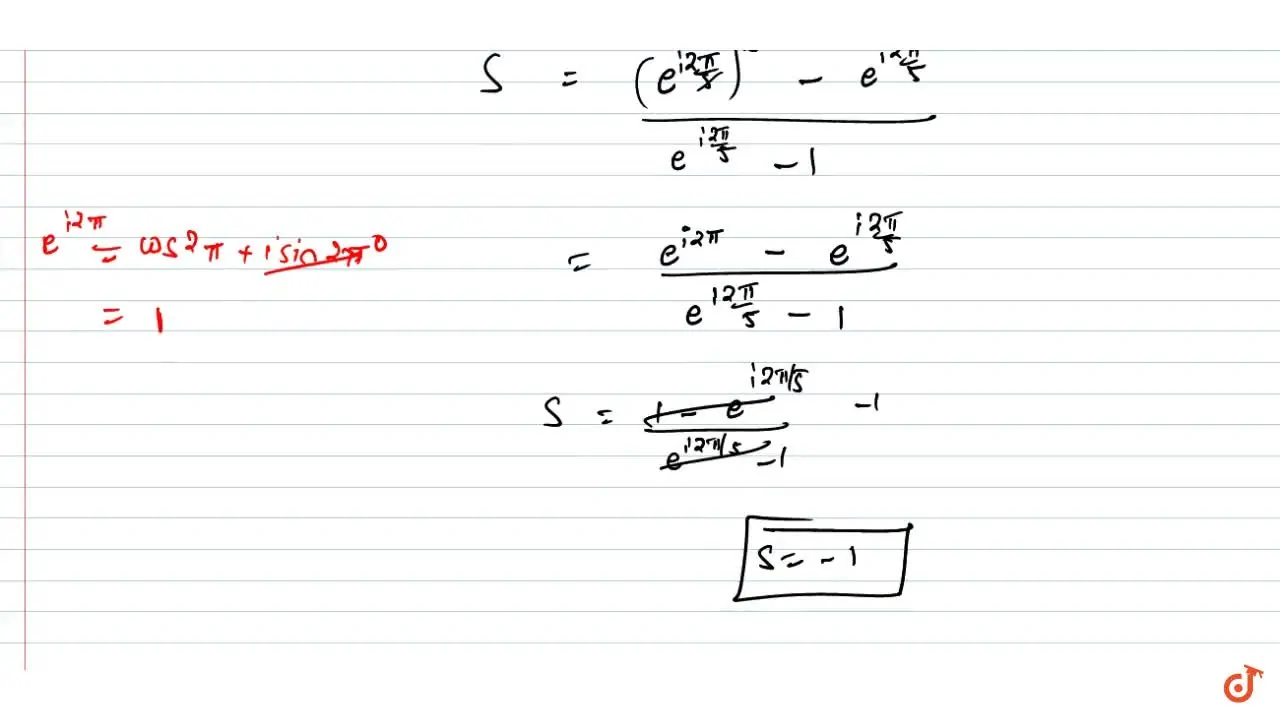 S = (e^{i2π/5}) - e^{i2π/5}
e^{i2π/5} - 1
e^{i2π} = cos 2π + i sin 2π 0
= 1
= e^{i2π} - e^{i2π/5}
e^{i2π/5} - 1
S = 1 - e^{i2π/5} -1
e^{i2π/5} - 1
S = -1